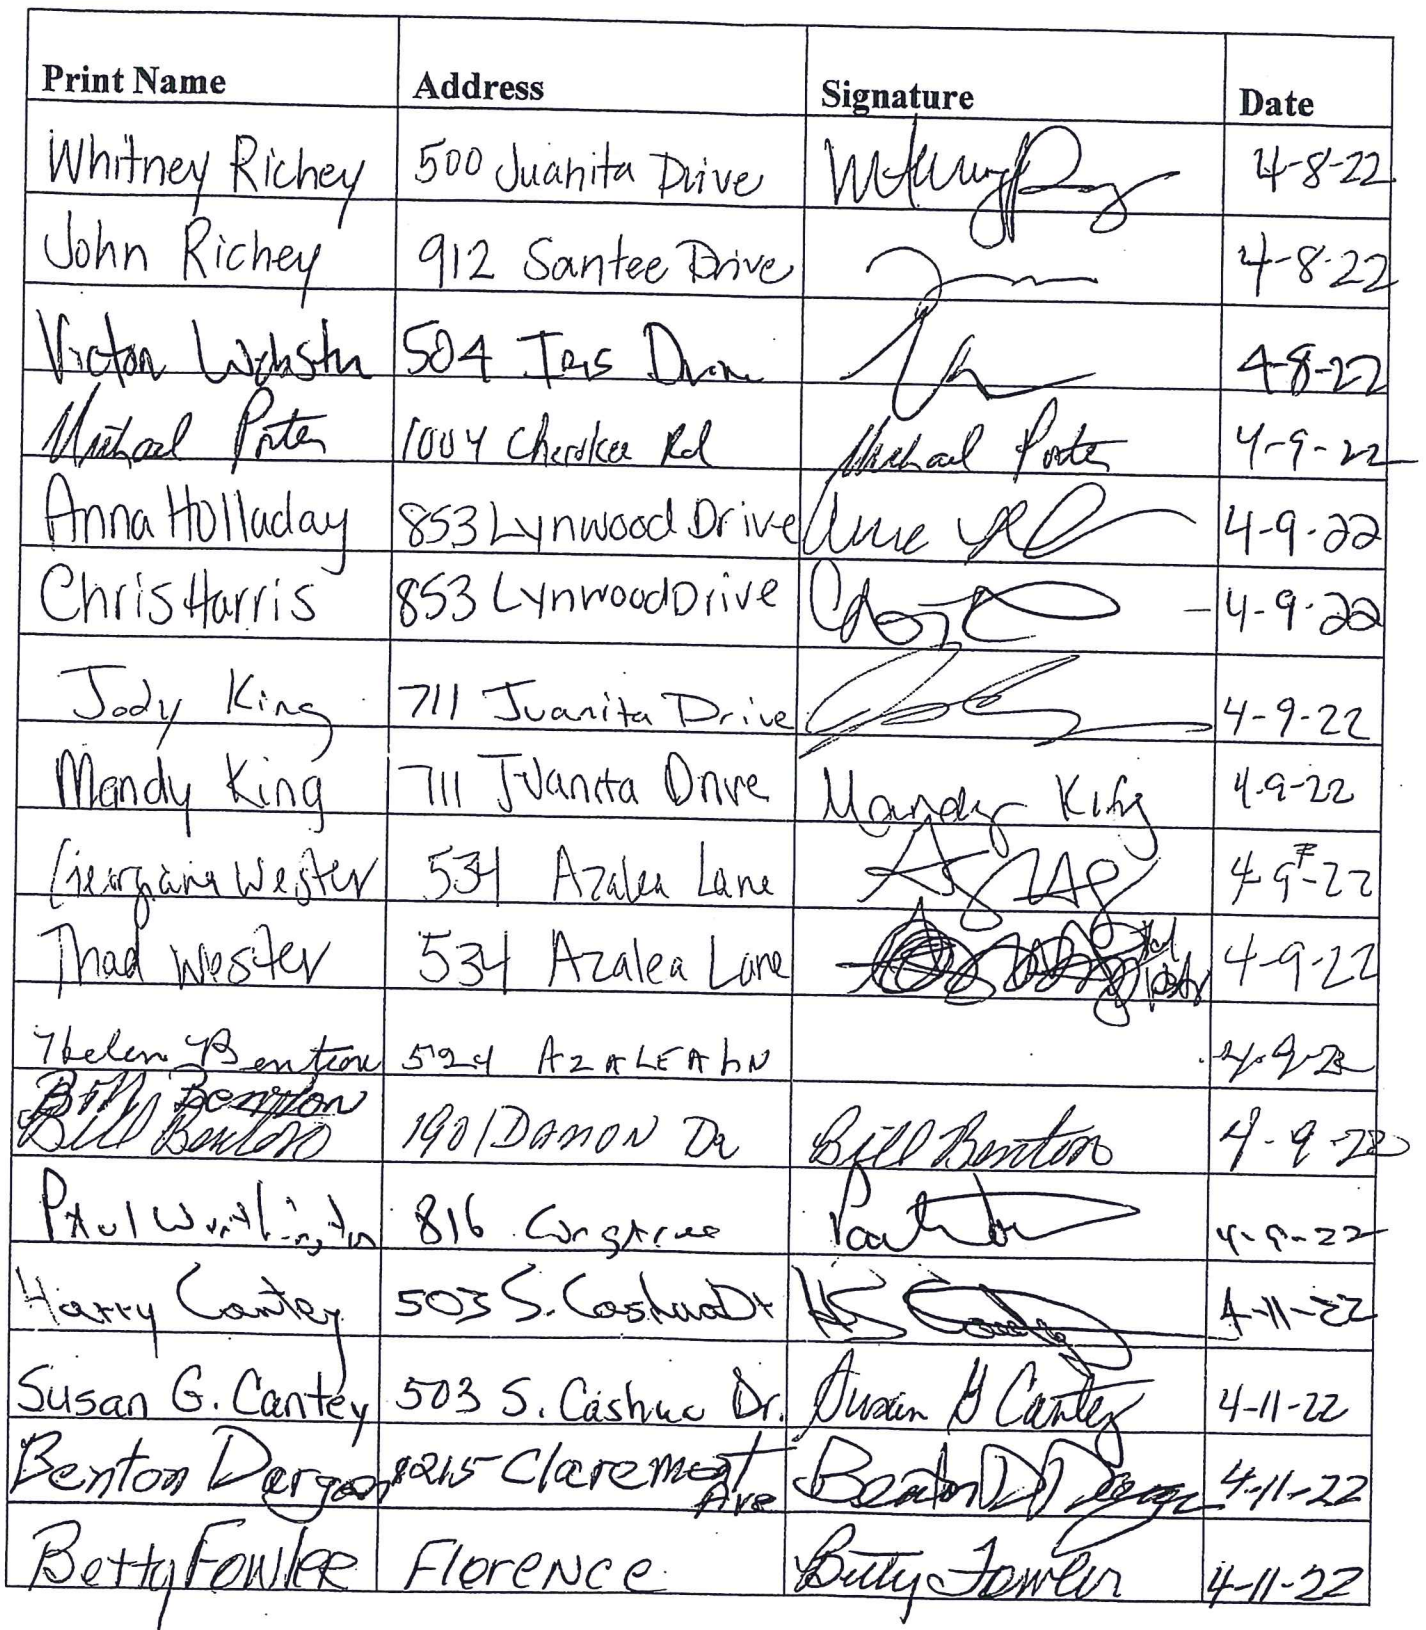 Print Name Address Signature Date
Whitney Richey 500 Juanita Drive 4-8-22
John Richey 912 Santee Drive 4-8-22
Victor Webster 504 Iris Drive 4-8-22
Michael Porter 1004 Cherokee Rd Michael Porter 4-9-22
Anna Holladay 853 Lynwood Drive 4-9-22
Chris Harris 853 Lynwood Drive 4-9-22
Jody King 711 Juanita Drive 4-9-22
Mandy King 711 Juanita Drive Mandy King 4-9-22
Georgiana Wester 534 Azalea Lane 4-9-22
Thad Wester 534 Azalea Lane 4-9-22
Helen Benton 524 AZALEA LN
Bill Benton
Bill Benton 1901 DAMON Dr Bill Benton 4-9-22
Paul Worthington 816 4-9-22
Harry Cantey 503 S. Cashua Dr 4-11-22
Susan G. Cantey 503 S. Cashua Dr. Susan G Cantey 4-11-22
Benton Dargan Claremont Ave Benton D Dargan 4-11-22
Betty Fowler Florence Betty Fowler 4-11-22